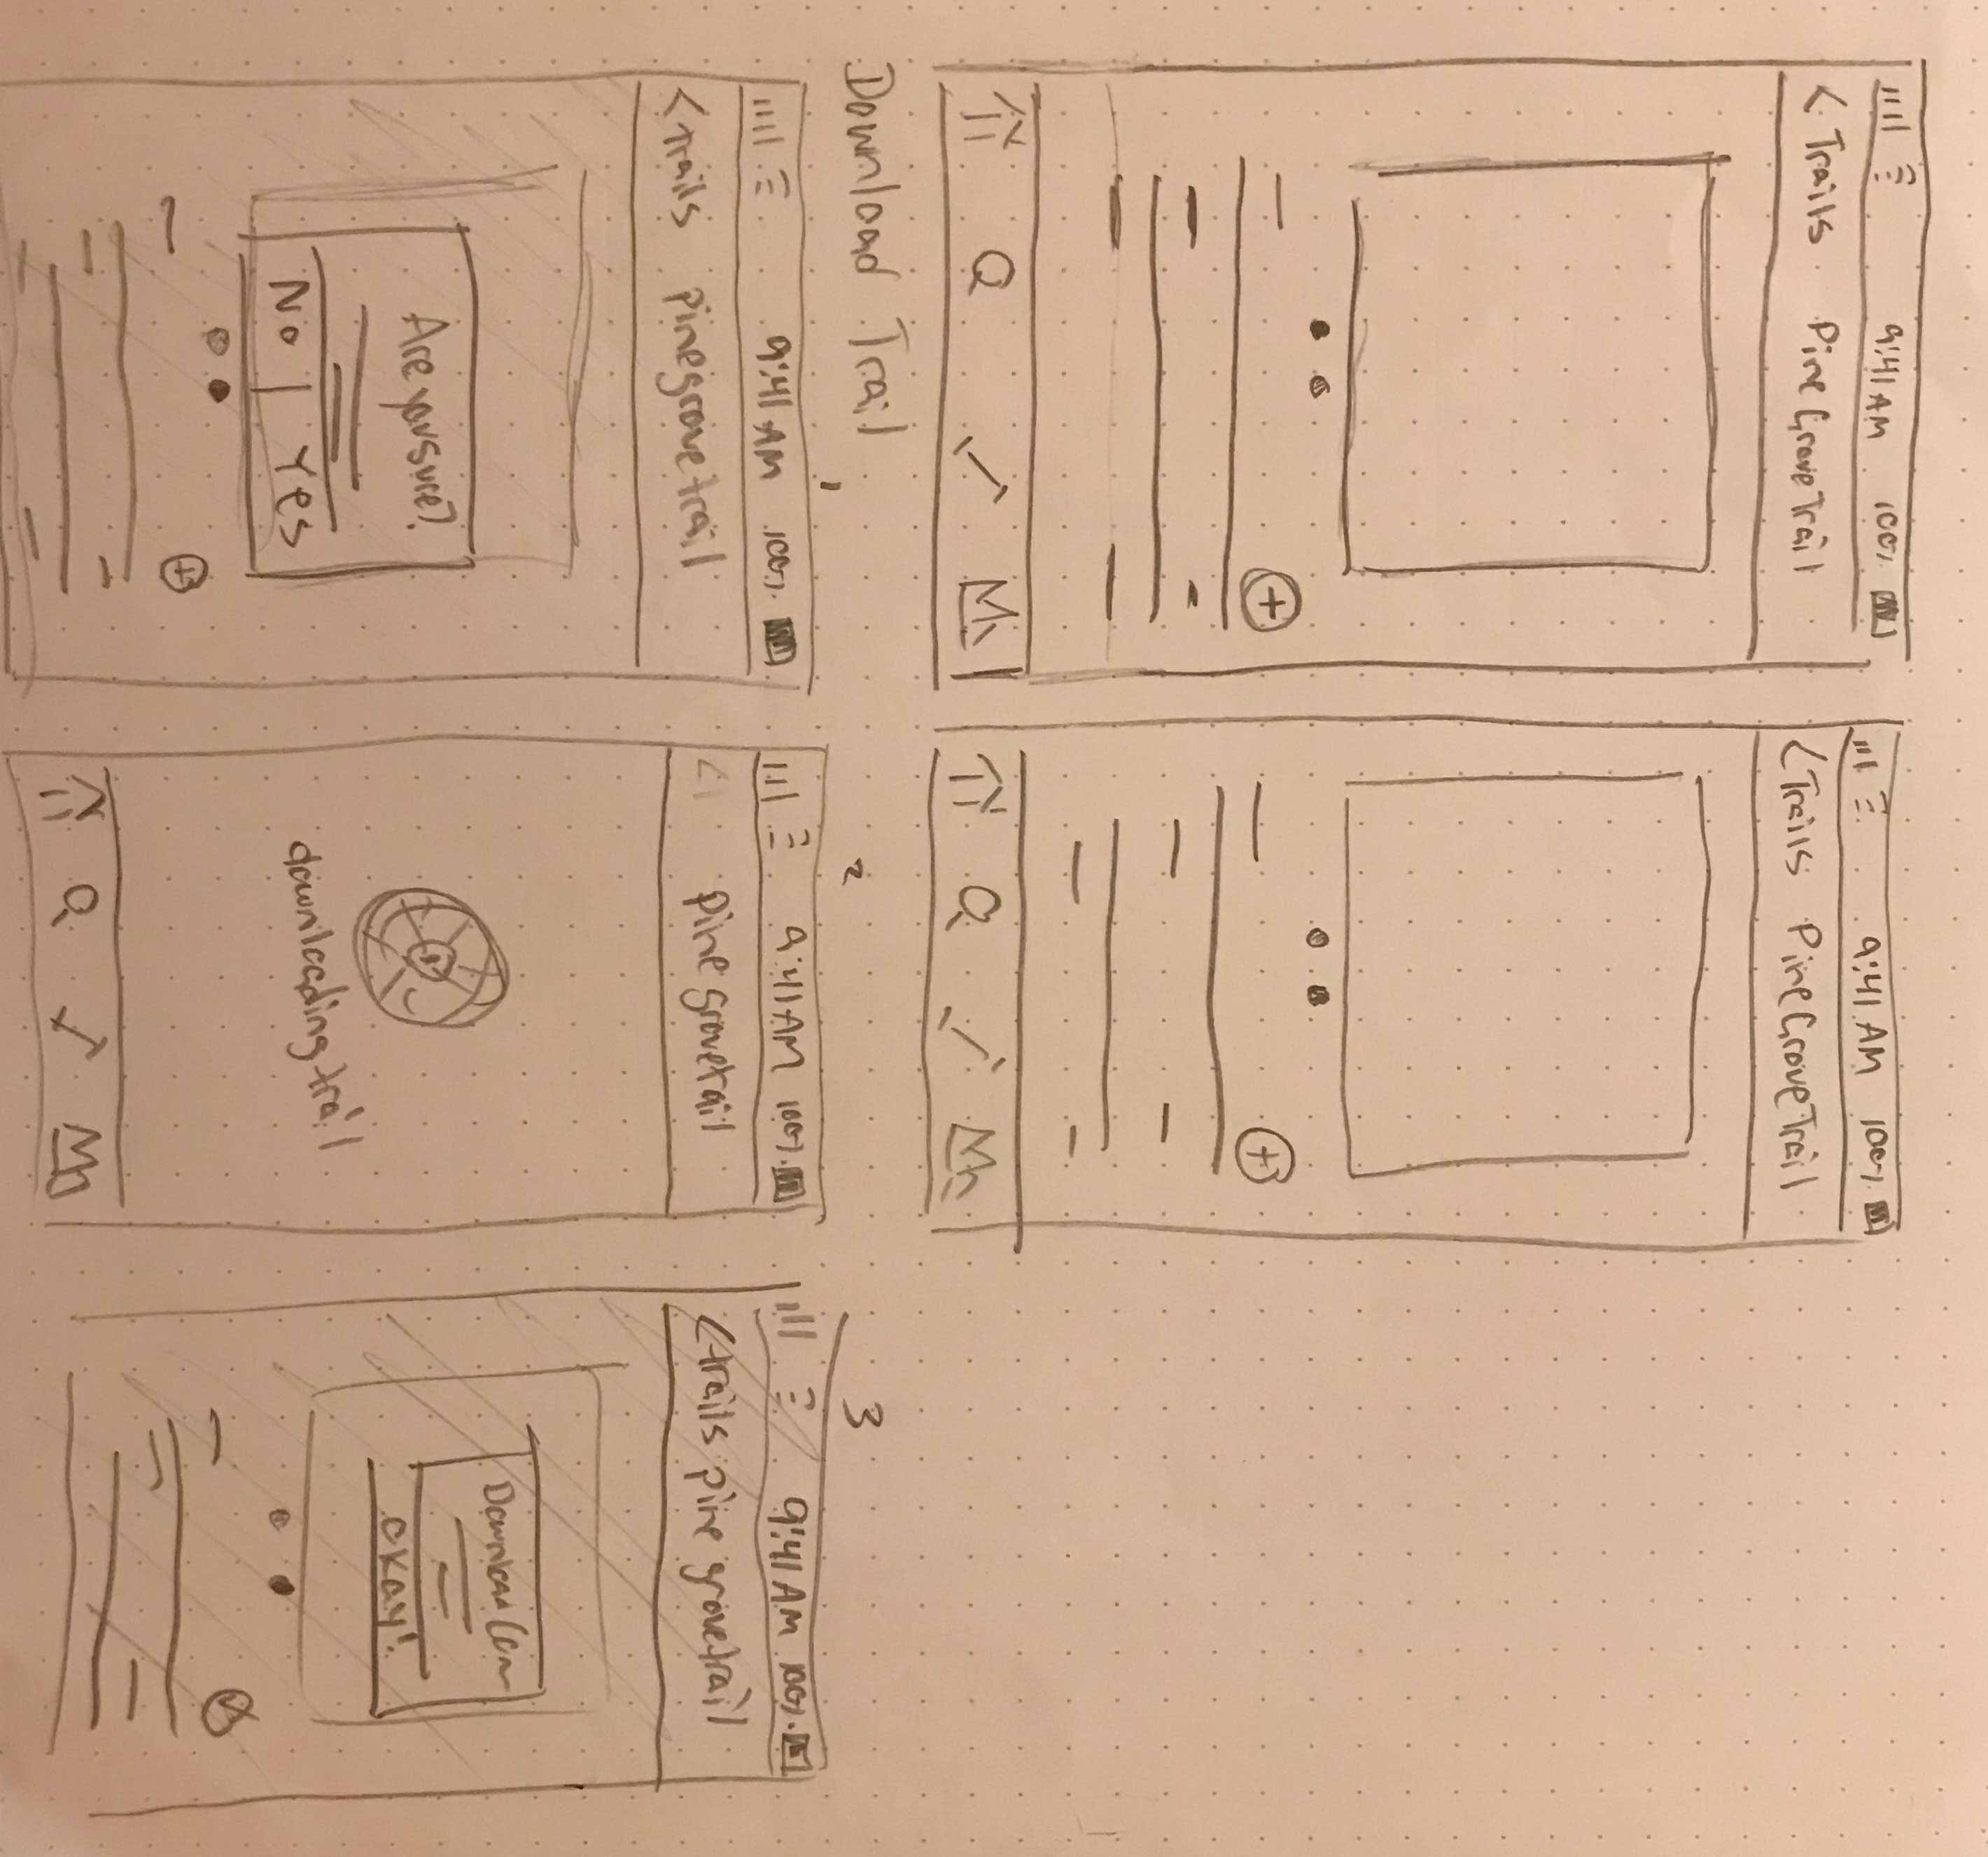 9:41 AM 100%
< Trails Pine Grove Trail
9:41 AM 100%
< Trails Pine Grove Trail
Download Trail
1
9:41 AM 100%
< trails pine grove trail
Are you sure?
No | Yes
2
9:41 AM 100%
< pine grove trail
downloading trail
3
9:41 AM 100%
< trails pine grove trail
okay!